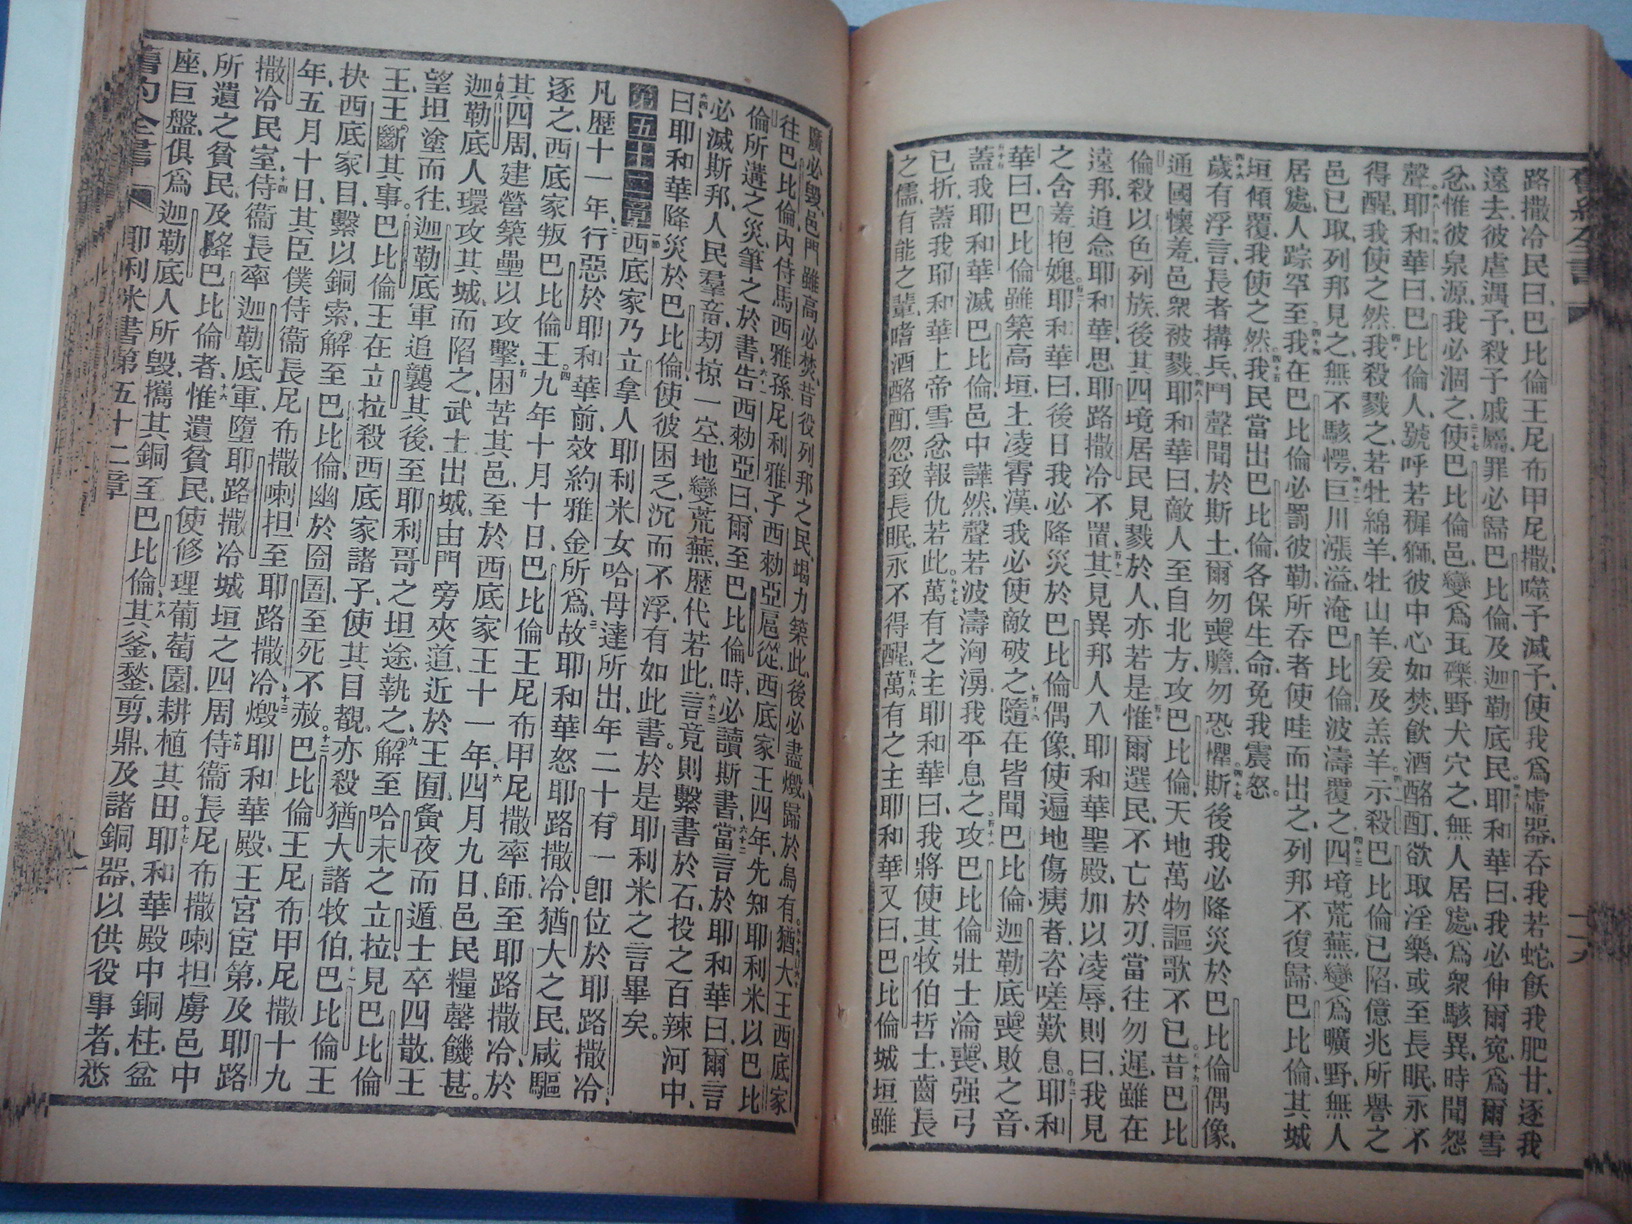 舊約全書
路撒冷民曰巴比倫王尼布甲尼撒噬予滅予使我爲虛器吞我若蛇飫我肥甘逐我
遠去彼虐遇予殺予戚屬罪必歸巴比倫及迦勒底民耶和華曰我必伸爾寃爲爾雪
忿惟彼泉源我必涸之使巴比倫邑變爲瓦礫野犬穴之無人居處爲衆駭異時聞怨
聲耶和華曰巴比倫人號呼若穉獅彼中心如焚飲酒酩酊欲取淫樂或至長眠永不
得醒我使之然我殺戮之若牡綿羊牡山羊爰及羔羊示殺巴比倫已陷億兆所譽之
邑已取列邦見之無不駭愕巨川漲溢淹巴比倫波濤覆之四境荒蕪變爲曠野無人
居處人踪罕至我在巴比倫必罰彼勒所吞者使哇而出之列邦不復歸巴比倫其城
垣傾覆我使之然我民當出巴比倫各保生命免我震怒
歲有浮言長者搆兵鬥聲聞於斯土爾勿喪膽勿恐懼斯後我必降災於巴比倫偶像
通國懷羞邑衆被戮耶和華曰敵人至自北方攻巴比倫天地萬物謳歌不已昔巴比
倫殺以色列族後其四境居民見戮於人亦若是惟爾選民不亡於刃當往勿遲雖在
遠邦追念耶和華思耶路撒冷不置其見異邦人入耶和華聖殿加以凌辱則曰我見
之含羞抱媿耶和華曰後日我必降災於巴比倫偶像使遍地傷痍者咨嗟歎息耶和
華曰巴比倫雖築高垣上凌霄漢我必使敵破之隨在皆聞巴比倫迦勒底喪敗之音
蓋我耶和華滅巴比倫邑中譁然聲若波濤洶湧我平息之攻巴比倫壯士淪喪强弓
已折蓋我耶和華上帝雪忿報仇若此萬有之主耶和華曰我將使其牧伯哲士齒長
之儒有能之輩嗜酒酩酊忽致長眠永不得醒萬有之主耶和華又曰巴比倫城垣雖
廣必毀邑門雖高必焚昔役列邦之民竭力築此後必盡燬歸於烏有猶大王西底家
往巴比倫內侍馬西雅孫尼利雅子西勑亞扈從西底家王四年先知耶利米以巴比
倫所遘之災筆之於書告西勑亞曰爾至巴比倫時必讀斯書當言於耶和華曰爾言
必滅斯邦人民羣畜刧掠一空地變荒蕪歷代若此言竟則繫書於石投之百辣河中
曰耶和華降災於巴比倫使彼困乏沉而不浮有如此書於是耶利米之言畢矣
第五十二章西底家乃立拿人耶利米女哈母達所出年二十有一卽位於耶路撒冷
凡歷十一年行惡於耶和華前效約雅金所爲故耶和華怒耶路撒冷猶大之民咸驅
逐之西底家叛巴比倫王九年十月十日巴比倫王尼布甲尼撒率師至耶路撒冷於
其四周建營築壘以攻擊困苦其邑至於西底家王十一年四月九日邑民糧罄饑甚
迦勒底人環攻其城而陷之武士出城由門旁夾道近於王囿夤夜而遁士卒四散王
望坦塗而往迦勒底軍追襲其後至耶利哥之坦途執之解至哈末之立拉見巴比倫
王王斷其事巴比倫王在立拉殺西底家諸子使其目覩亦殺猶大諸牧伯巴比倫王
抉西底家目繫以銅索解至巴比倫幽於囹圄至死不赦巴比倫王尼布甲尼撒十九
年五月十日其臣僕侍衞長尼布撒喇担至耶路撒冷燬耶和華殿王宮宦第及耶路
撒冷民室侍衞長率迦勒底軍墮耶路撒冷城垣之四周侍衞長尼布撒喇担虜邑中
所遺之貧民及降巴比倫者惟遺貧民使修理葡萄園耕植其田耶和華殿中銅柱盆
座巨盤俱爲迦勒底人所毀攜其銅至巴比倫其釜鍫剪鼎及諸銅器以供役事者悉
舊約全書 耶利米書第五十二章